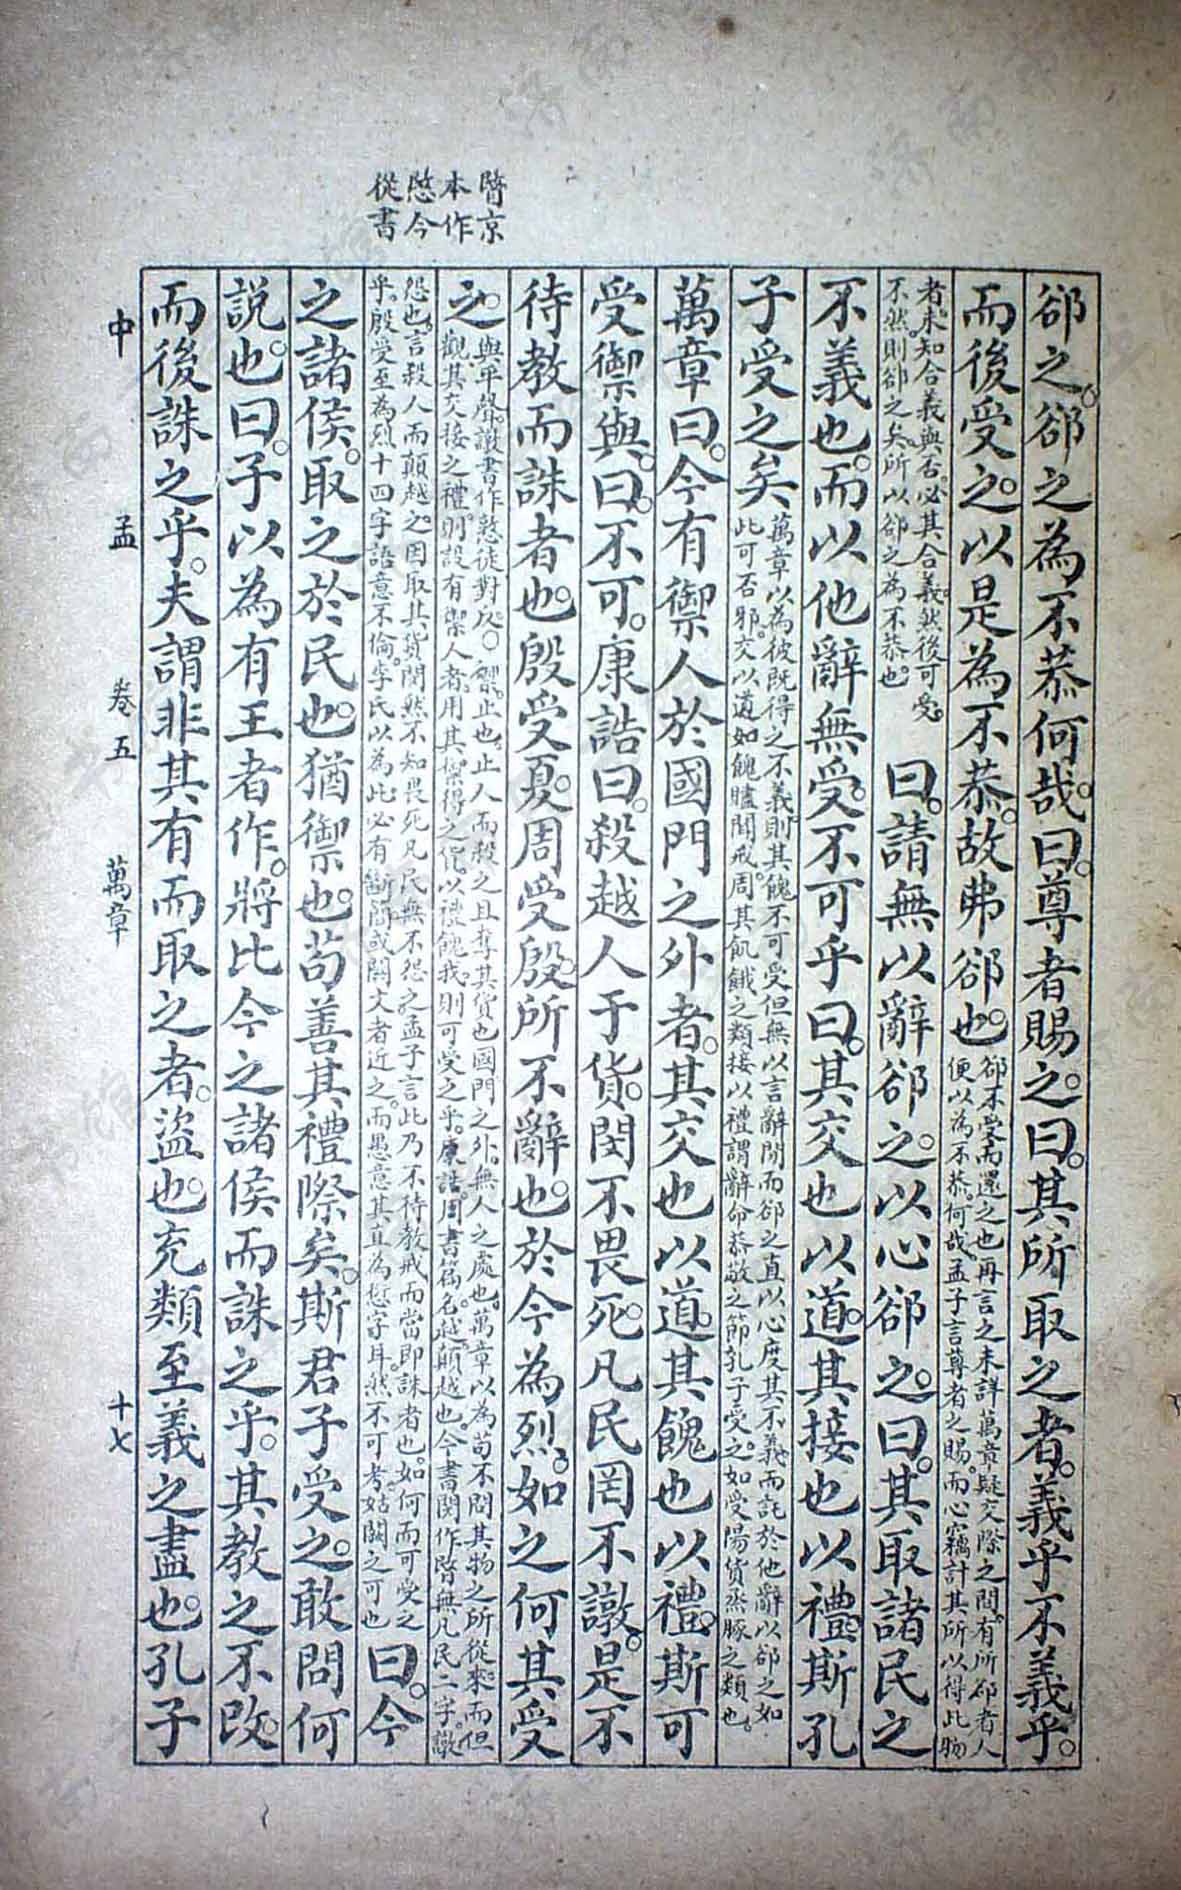 醫京
本作
慜今
從書
郤之。郤之為不恭何哉。曰。尊者賜之。曰。其所取之者。義乎不義乎。
而後受之。以是為不恭。故弗郤也。郤不受而還之也再言之未詳萬章疑交際之間。有所郤者人便以為不恭。何哉。孟子言尊者之賜。而心竊計其所以得此物
者。未知合義與否。必其合義。然後可受。不然。則郤之矣。所以郤之為不恭也。曰。請無以辭郤之。以心郤之。曰。其取諸民之
不義也。而以他辭無受。不可乎。曰。其交也以道。其接也以禮。斯孔
子受之矣萬章以為彼既得之不義。則其餽不可受。但無以言辭間而郤之。直以心度其不義。而託於他辭以郤之。如此可否邪。交以道如餽贐聞戒。周其飢餓之類接以禮謂辭命恭敬之節孔子受之。如受陽貨烝豚之類也。
萬章曰。今有禦人於國門之外者。其交也以道。其餽也以禮。斯可
受禦與。曰。不可。康誥曰。殺越人于貨。閔不畏死。凡民罔不譈。是不
待教而誅者也。殷受夏。周受殷。所不辭也。於今為烈。如之何其受
之。與平聲。譈書作憝徒對反。○禦。止也。止人而殺之且奪其貨也國門之外。無人之處也。萬章以為苟不問其物之所從來。而但觀其交接之禮。則設有禦人者。用其禦得之貨。以禮餽我。則可受之乎。康誥。周書篇名。越。顛越也。今書閔作暋無凡民二字。譈
怨也。言殺人而顛越之。因取其貨閔然不知畏死凡民無不怨之。孟子言此乃不待教戒而當即誅者也。如何而可受之乎。殷受至為烈十四字語意不倫。李氏以為此必有斷簡或闕文者近之。而愚意其直為衍字耳。然不可考。姑闕之可也曰。今
之諸侯。取之於民也。猶禦也。苟善其禮際矣。斯君子受之。敢問何
說也。曰。子以為有王者作。將比今之諸侯而誅之乎。其教之不改。
而後誅之乎。夫謂非其有而取之者。盜也。充類至義之盡也。孔子
中 孟 卷五 萬章 十七